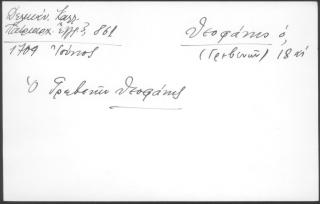 Δελικάν. Καλλ.
Πατριαρχ. Ἔγγρ. 3, 861
1709 Ἰούνιος
Θεοφάνης ὁ,
(Γρεβενῶν) 18 αἰ
Ὁ Γρεβενῶν Θεοφάνης